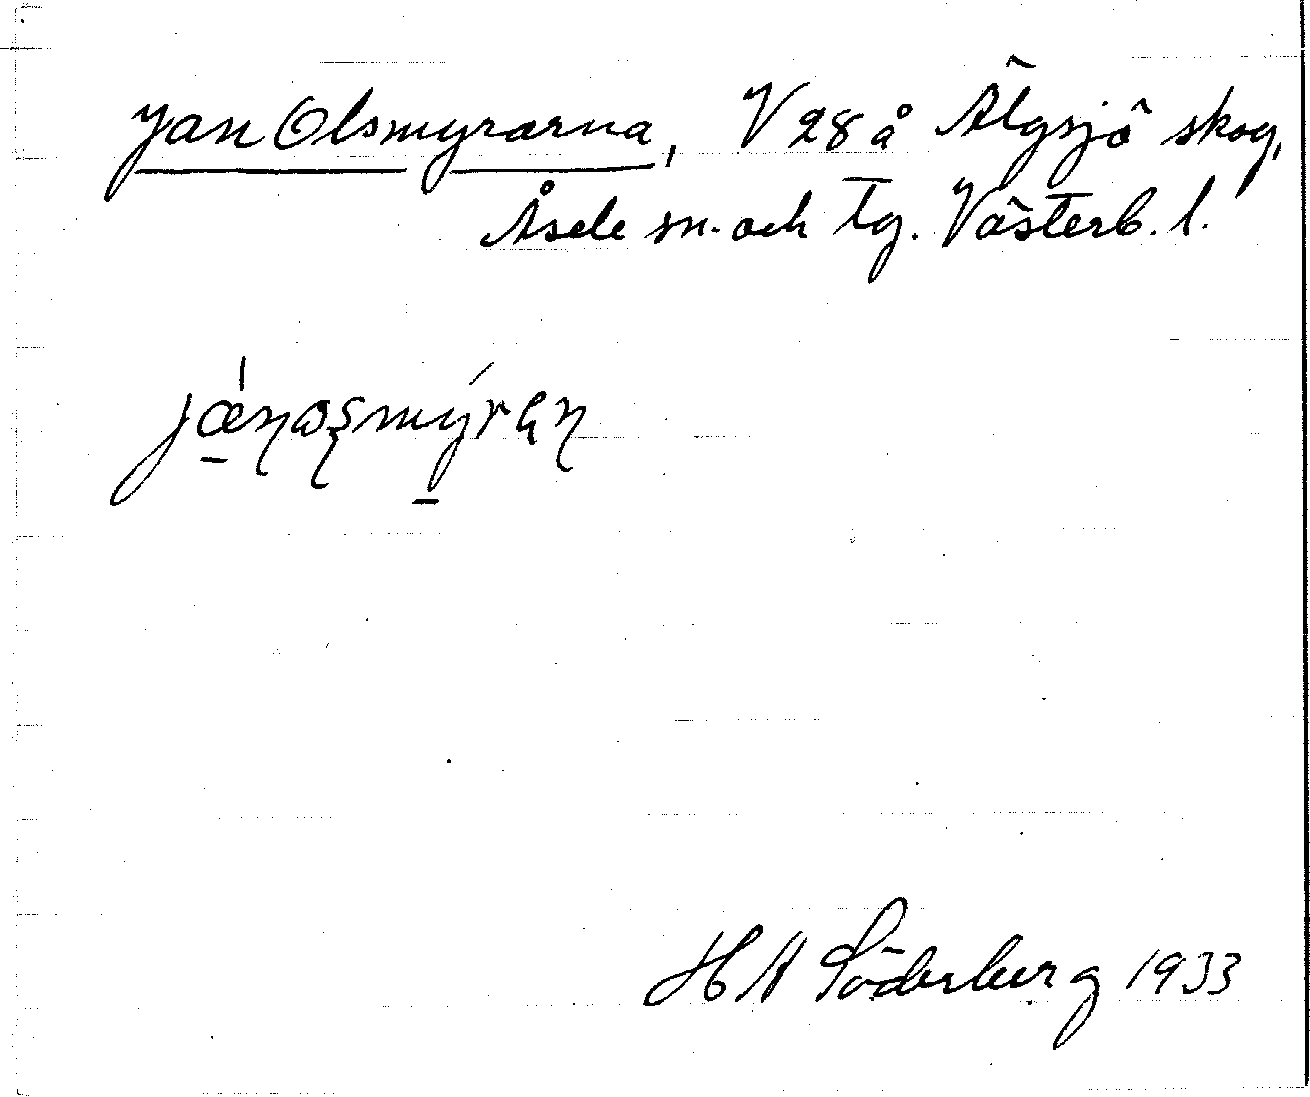 Jan Olsmyrarna, V 28 å Älgsjö skog,
Åsele sn. och tg. Västerb. l.
H A Söderberg 1933